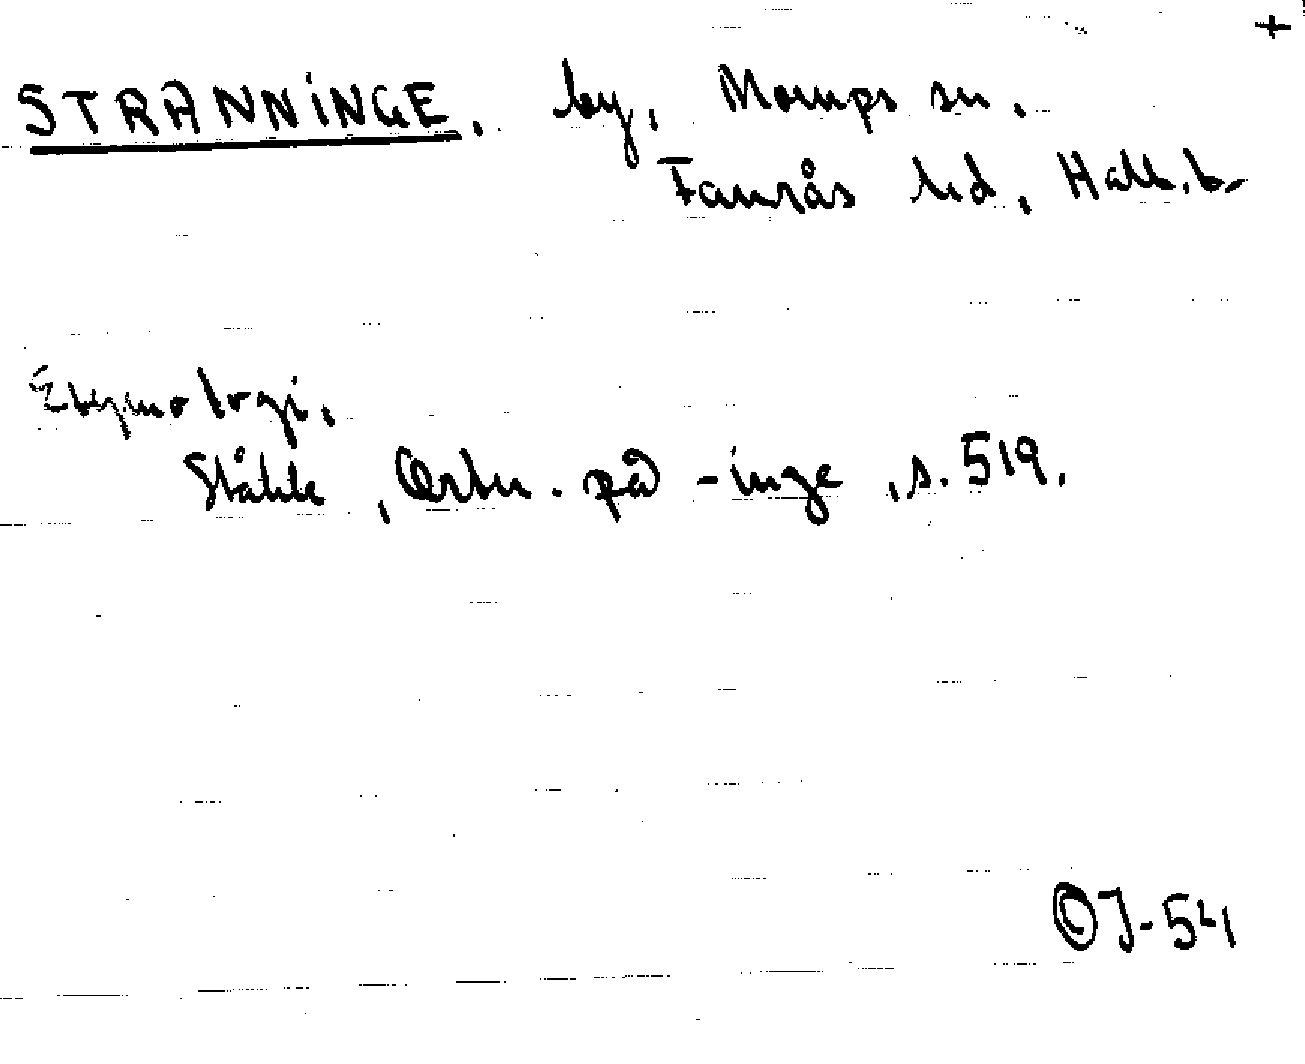 +
STRANNINGE. by, Morups sn.
Faurås hd, Hall.b.
Etymologi.
Ståhle, Ortn. på -inge, s. 519.
OJ-54